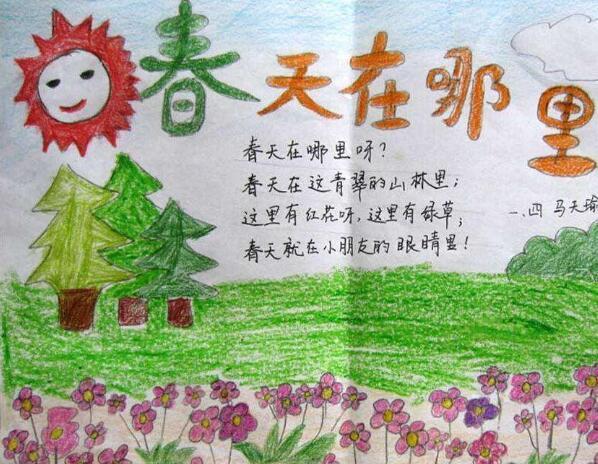 春天在哪里
春天在哪里呀?
春天在这青翠的山林里;
这里有红花呀,这里有绿草;
一.四 马天瑜
春天就在小朋友的眼睛里!